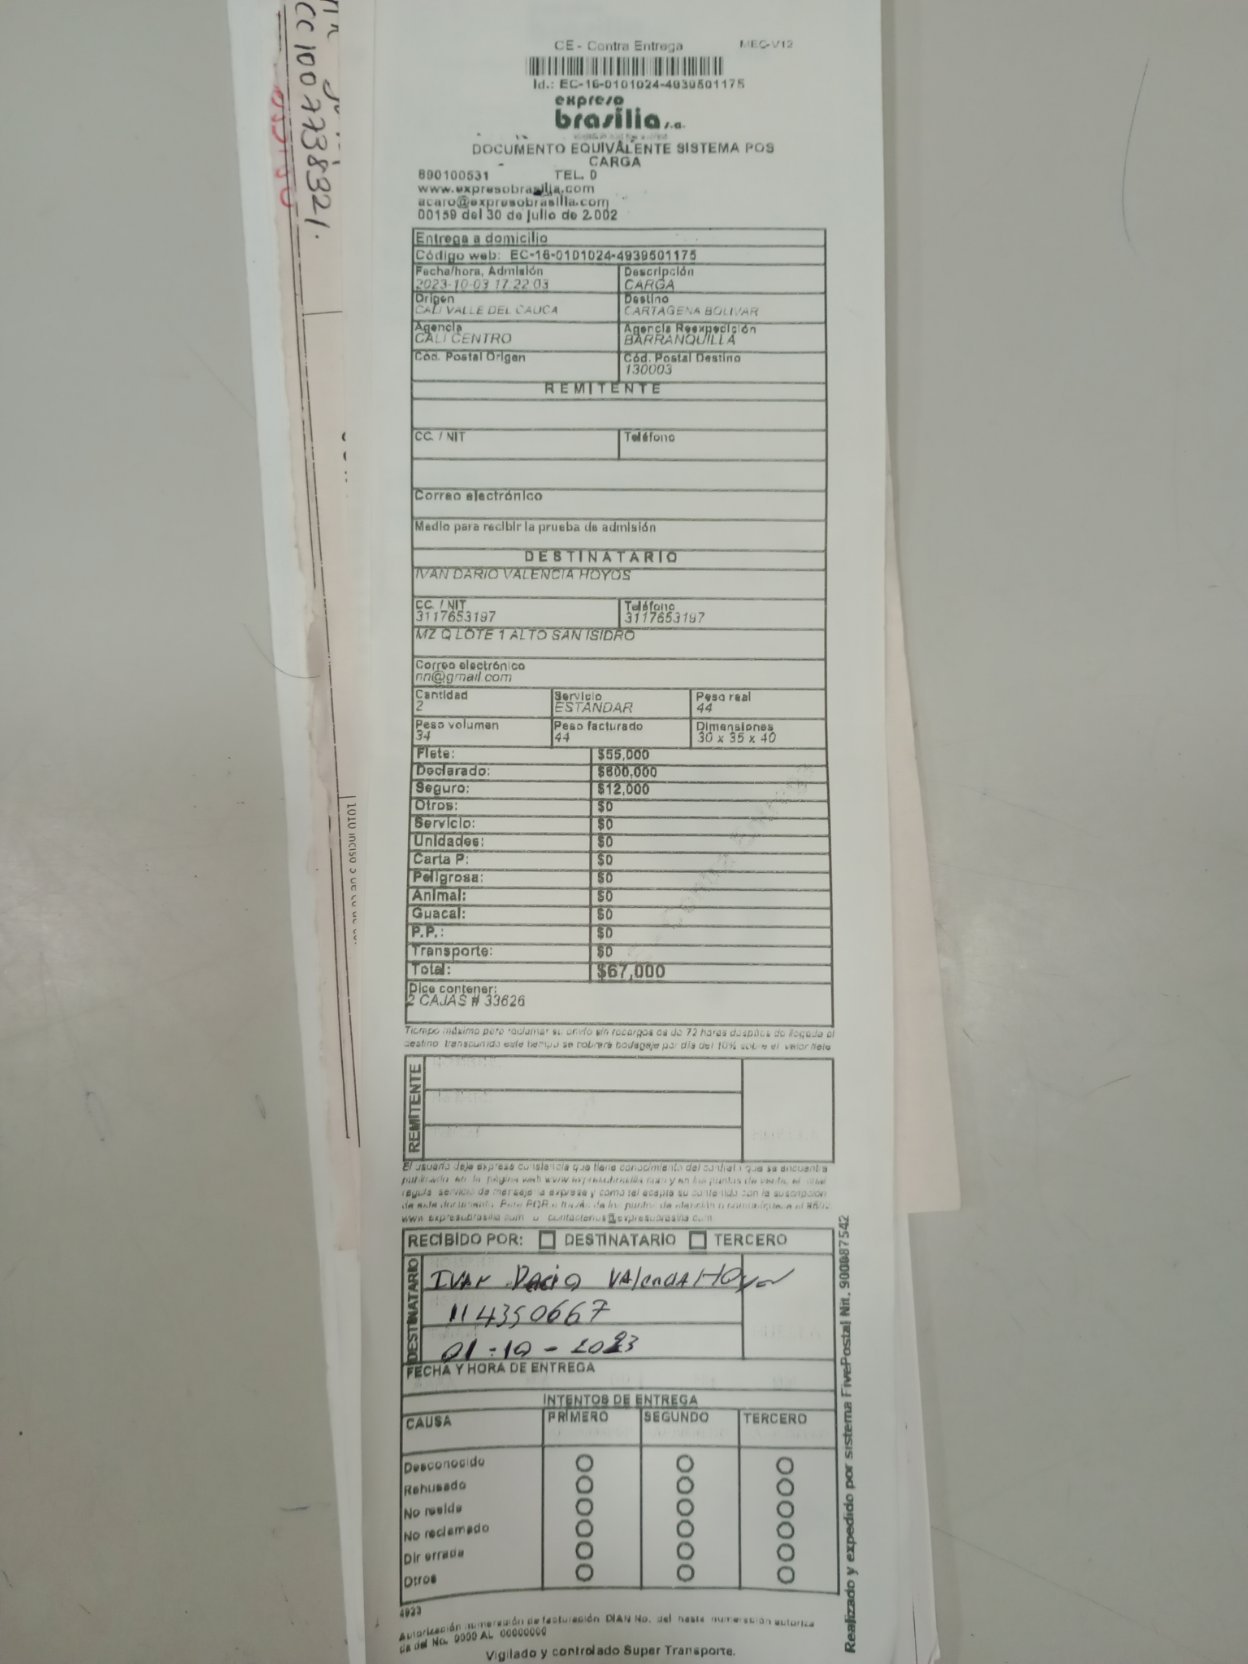 CC 1007738321.
1010 inciso 5
CE - Contra Entrega
MEC-V12
Id.: EC-16-0101024-4939501175
expreso
brasilia s.a.
DOCUMENTO EQUIVALENTE SISTEMA POS
CARGA
890100531 TEL. 0
www.expresobrasilia.com
acaro@expresobrasilia.com
00159 del 30 de julio de 2.002
Entrega a domicilio
Código web: EC-16-0101024-4939501175
Fecha/hora, Admisión Descripción
2023-10-03 17:22:03 CARGA
Origen Destino
CALI VALLE DEL CAUCA CARTAGENA BOLIVAR
Agencia Agencia Reexpedición
CALI CENTRO BARRANQUILLA
Cód. Postal Origen Cód. Postal Destino
130003
REMITENTE
CC. / NIT Teléfono
Correo electrónico
Medio para recibir la prueba de admisión
DESTINATARIO
IVAN DARIO VALENCIA HOYOS
CC. / NIT Teléfono
3117653197 3117653197
MZ Q LOTE 1 ALTO SAN ISIDRO
Correo electrónico
nn@gmail.com
Cantidad Servicio Peso real
2 ESTANDAR 44
Peso volumen Peso facturado Dimensiones
34 44 30 x 35 x 40
Flete: $55,000
Declarado: $600,000
Seguro: $12,000
Otros: $0
Servicio: $0
Unidades: $0
Carta P: $0
Peligrosa: $0
Animal: $0
Guacal: $0
P.P.: $0
Transporte: $0
Total: $67,000
Dice contener:
2 CAJAS # 33626
Tiempo máximo para reclamar su envío sin recargos es de 72 horas después de llegada al
destino, transcurrido este tiempo se cobrará bodegaje por día del 10% sobre el valor flete
REMITENTE
El usuario deja expresa constancia que tiene conocimiento del contrato que se encuentra
publicado en la página web www.expresobrasilia.com y en los puntos de venta, el cual
regula servicio de mensajería expresa y como tal acepta su contenido con la suscripción
de este documento. Para PQR
www.expresobrasilia.com o contactenos@expresobrasilia.com
RECIBIDO POR: DESTINATARIO TERCERO
DESTINATARIO
IVAN Dario VAlencia HOyos
114350667
01-10-2023
FECHA Y HORA DE ENTREGA
INTENTOS DE ENTREGA
CAUSA PRIMERO SEGUNDO TERCERO
Desconocido
Rehusado
No reside
No reclamado
Dir errada
Otros
4923
Autorización numeración de facturación DIAN No. del hasta numeración autoriza
da del No. 0000 AL 00000000
Vigilado y controlado Super Transporte.
Realizado y expedido por sistema FivePostal Nit. 900087542